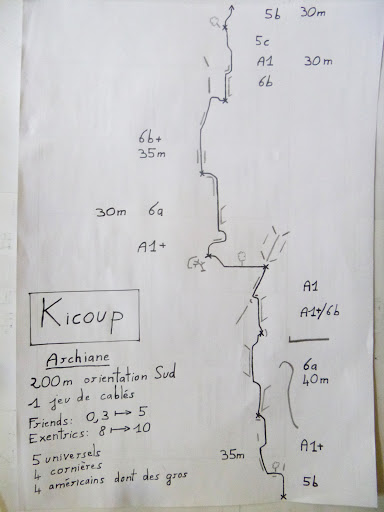 5b 30m
5c
A1 30m
6b
6b+
35m
30m 6a
A1+
A1
A1+/6b
6a
40m
A1+
35m
5b
Kicoup
Archiane
200m orientation Sud
1 jeu de cablés
Friends: 0,3 ↦ 5
Exentrics: 8 ↦ 10
5 universels
4 cornières
4 américains dont des gros